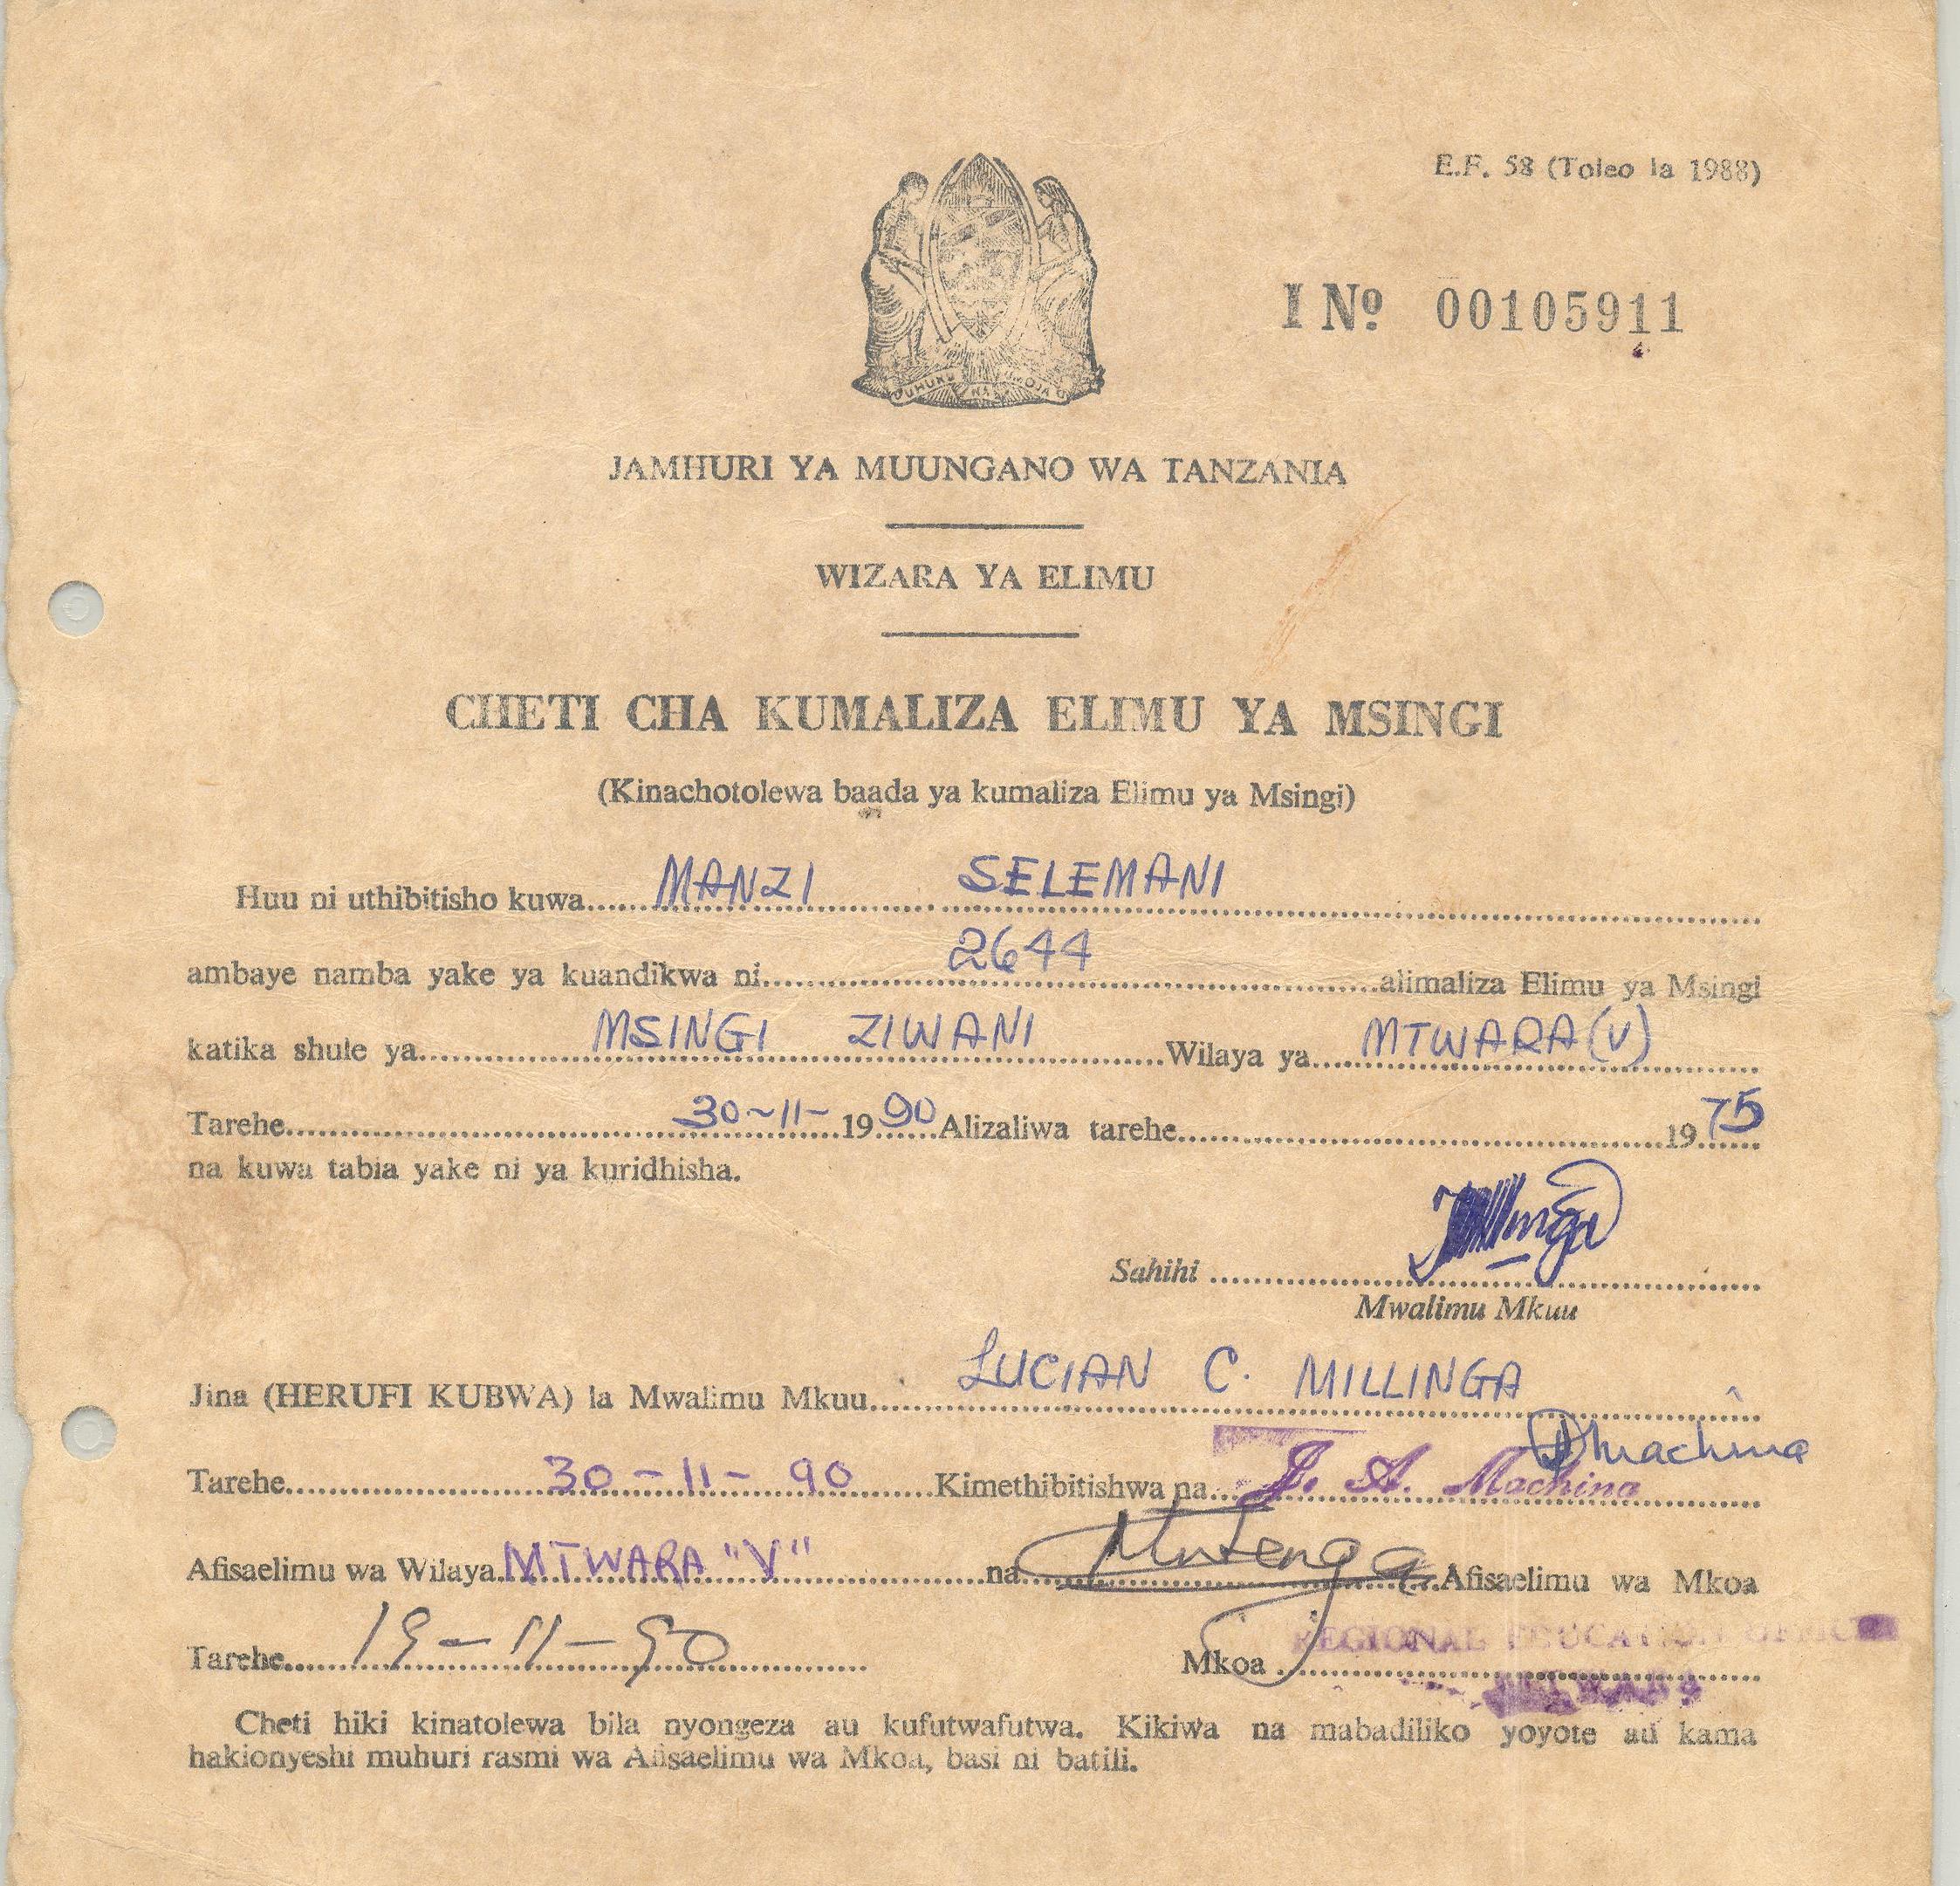 E.F. 58 (Toleo la 1988)
I Nº 00105911
UHURU NA UMOJA
JAMHURI YA MUUNGANO WA TANZANIA
WIZARA YA ELIMU
CHETI CHA KUMALIZA ELIMU YA MSINGI
(Kinachotolewa baada ya kumaliza Elimu ya Msingi)
Huu ni uthibitisho kuwa MANZI SELEMANI
ambaye namba yake ya kuandikwa ni 2644 alimaliza Elimu ya Msingi
katika shule ya MSINGI ZIWANI Wilaya ya MTWARA (V)
Tarehe 30-11- 1990 Alizaliwa tarehe 1975
na kuwa tabia yake ni ya kuridhisha.
Sahihi
Mwalimu Mkuu
Jina (HERUFI KUBWA) la Mwalimu Mkuu LUCIAN C. MILLINGA
Tarehe 30-11-90 Kimethibitishwa na J. A. Machina
Afisaelimu wa Wilaya MTWARA "V" na Afisaelimu wa Mkoa
Tarehe 19-11-90 Mkoa REGIONAL EDUCATION OFFICER
MTWARA
Cheti hiki kinatolewa bila nyongeza au kufutwafutwa. Kikiwa na mabadiliko yoyote au kama
hakionyeshi muhuri rasmi wa Afisaelimu wa Mkoa, basi ni batili.